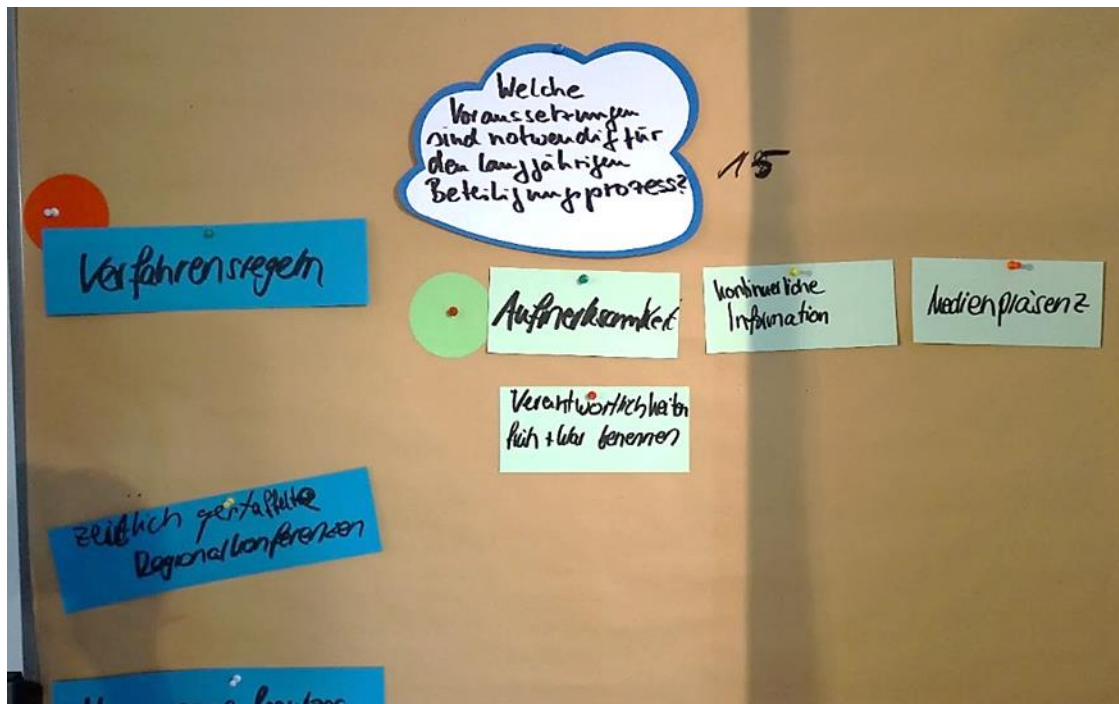 Welche
Voraussetzungen
sind notwendig für
den langjährigen
Beteiligungsprozess?
15
Verfahrensregeln
Aufmerksamkeit
kontinuierliche
Information
Medienpräsenz
Verantwortlichkeiten
früh + klar benennen
zeitlich gestaffelte
Regionalkonferenzen